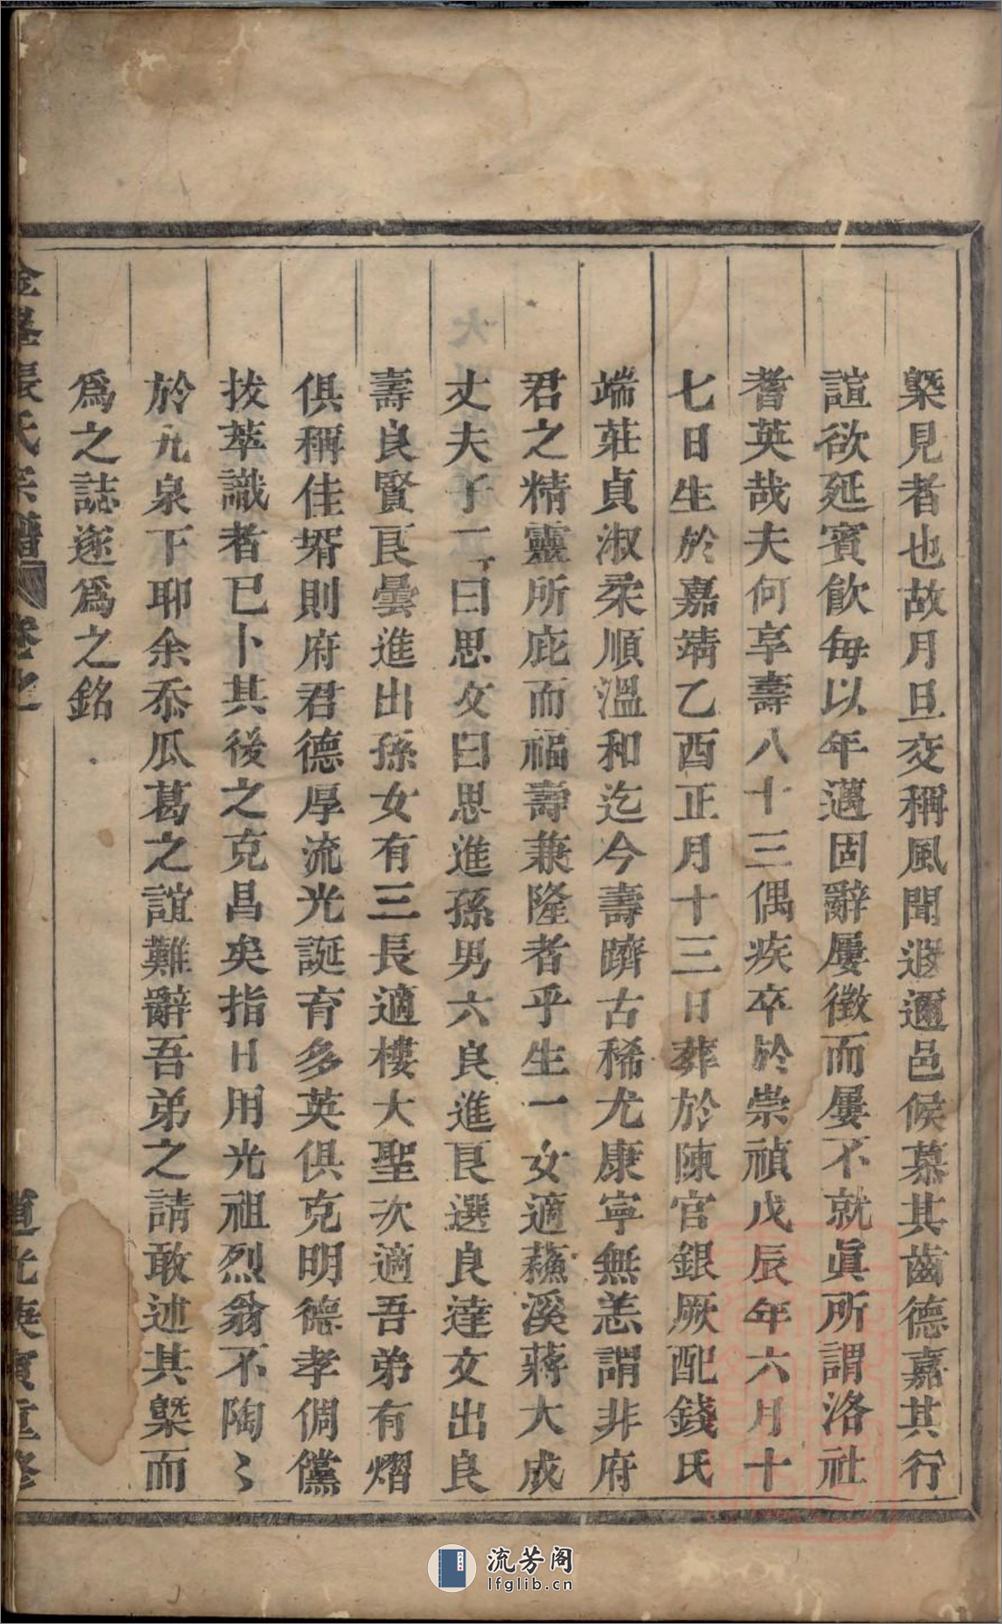 槩見者也故月旦交稱風聞遐邇邑候慕其齒德嘉其行
誼欲延賓飲每以年邁固辭屢徵而屢不就眞所謂洛社
耆英哉夫何享壽八十三偶疾卒於崇禎戊辰年六月十
七日生於嘉靖乙酉正月十三日葬於陳官銀厥配錢氏
端莊貞淑柔順溫和迄今壽躋古稀尤康寧無恙謂非府
君之精靈所庇而福壽兼隆者乎生一女適蘓溪蔣大成
丈夫子二曰思文曰思進孫男六良進良選良達文出良
壽良賢良曇進出孫女有三長適樓大聖次適吾弟有熠
俱稱佳壻則府君德厚流光誕育多英俱克明德孝倜儻
拔萃識者已卜其後之克昌矣指日用光祖烈翁不陶〻
於九泉下耶余忝瓜葛之誼難辭吾弟之請敢述其槩而
爲之誌遂爲之銘
張氏宗譜 卷之
道光庚寅重修
流芳阁
lfglib.cn